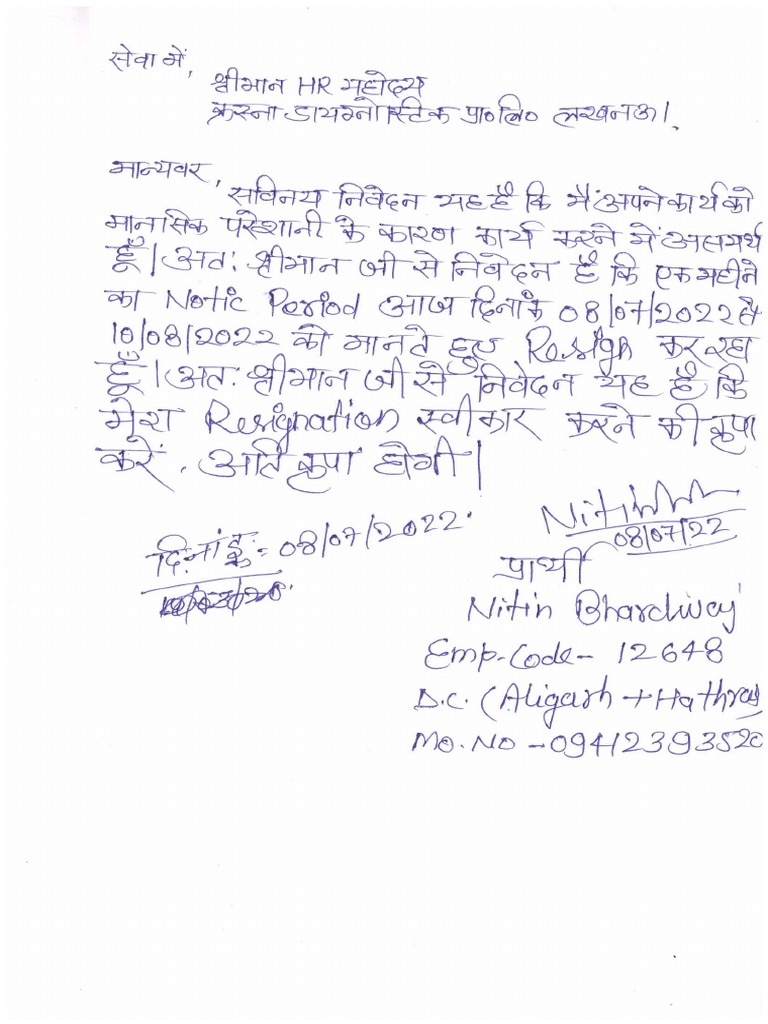 सेवा में,
श्रीमान HR महोदय
क्रस्ना डायग्नोस्टिक प्रा० लि० लखनऊ।
मान्यवर,
सविनय निवेदन यह है कि मैं अपने कार्य को
मानसिक परेशानी के कारण कार्य करने में असमर्थ
हूँ। अतः श्रीमान जी से निवेदन है कि एक महीने
का Notic Period आज दिनांक 08/07/2022 से
10/08/2022 को मानते हुए Resign कर रहा
हूँ। अतः श्रीमान जी से निवेदन यह है कि
मेरा Resignation स्वीकार करने की कृपा
करें. अति कृपा होगी।
Nitin
08/07/22
दिनांक:- 08/07/2022.
प्रार्थी
Nitin Bhardwaj
Emp.Code- 12648
D.C. (Aligarh + Hathras)
Mo.No -09412393520